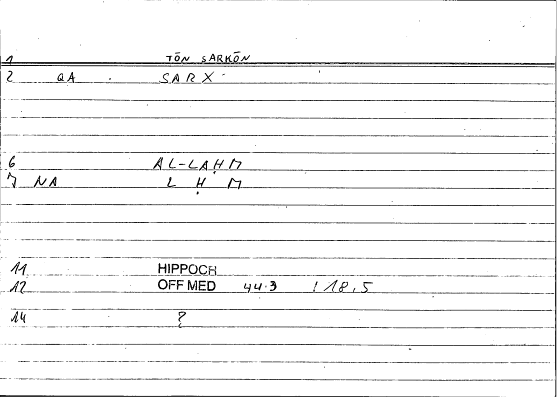 1 TŌN SARKŌN
2 QA . SARX
6 AL-LAḤM
7 NA L Ḥ M
11 HIPPOCR
12 OFF MED 44.3 118,5
14 ?